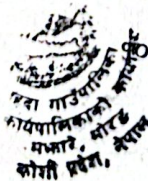 हदा गाउँपालिका
कार्यपालिकाको कार्यालय
मझारे, मोरङ
कोशी प्रदेश, नेपाल